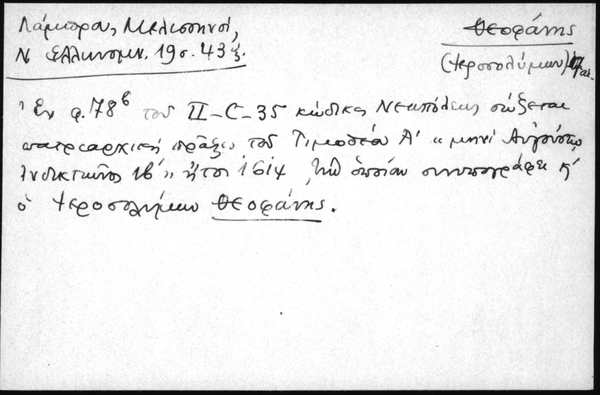 Λάμπρου, Μελισσηνοί,
Ν. Ελληνομν. 19 σ. 43 ἑξ.
Θεοφάνης
(Ἱεροσολύμων) 17 αἰ.
Ἐν φ. 78β τοῦ II-C-35 κώδικος Νεαπόλεως σώζεται
πατριαρχική πρᾶξις τοῦ Τιμοθέου Α' "μηνί Αὐγούστῳ,
ἰνδικτιῶνος ιβ'" ἤτοι 1614, τήν ὁποίαν συνυπογράφει κ'
ὁ Ἱεροσολύμων Θεοφάνης.